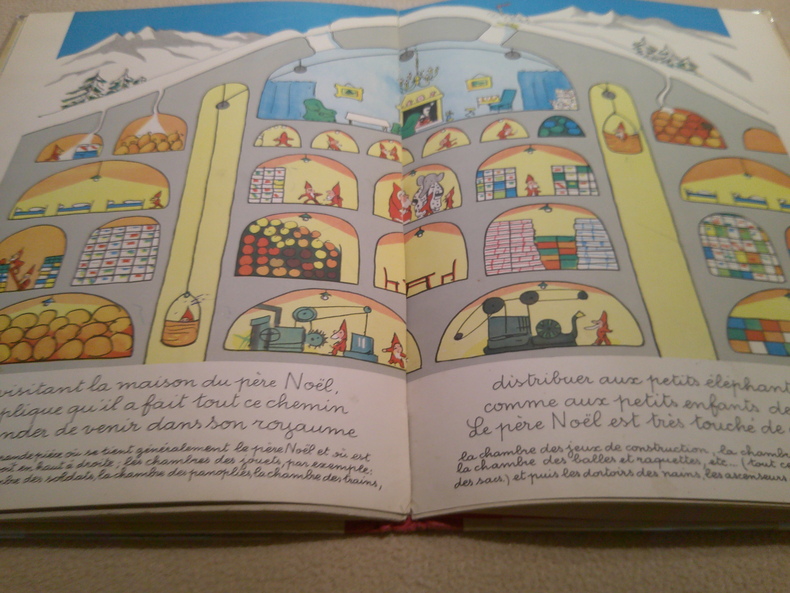 visitant la maison du père Noël,
plique qu'il a fait tout ce chemin
nder de venir dans son royaume
distribuer aux petits éléphant
comme aux petits enfants de
Le père Noël est très touché de
grande pièce où se tient généralement le père Noël et où est
en haut à droite ; les chambres des jouets, par exemple :
bre des soldats, la chambre des panoplies, la chambre des trains,
la chambre des jeux de construction, la chambre
la chambre des balles et raquettes, etc... (tout ce
des sacs.) et puis les dortoirs des nains, les ascenseurs